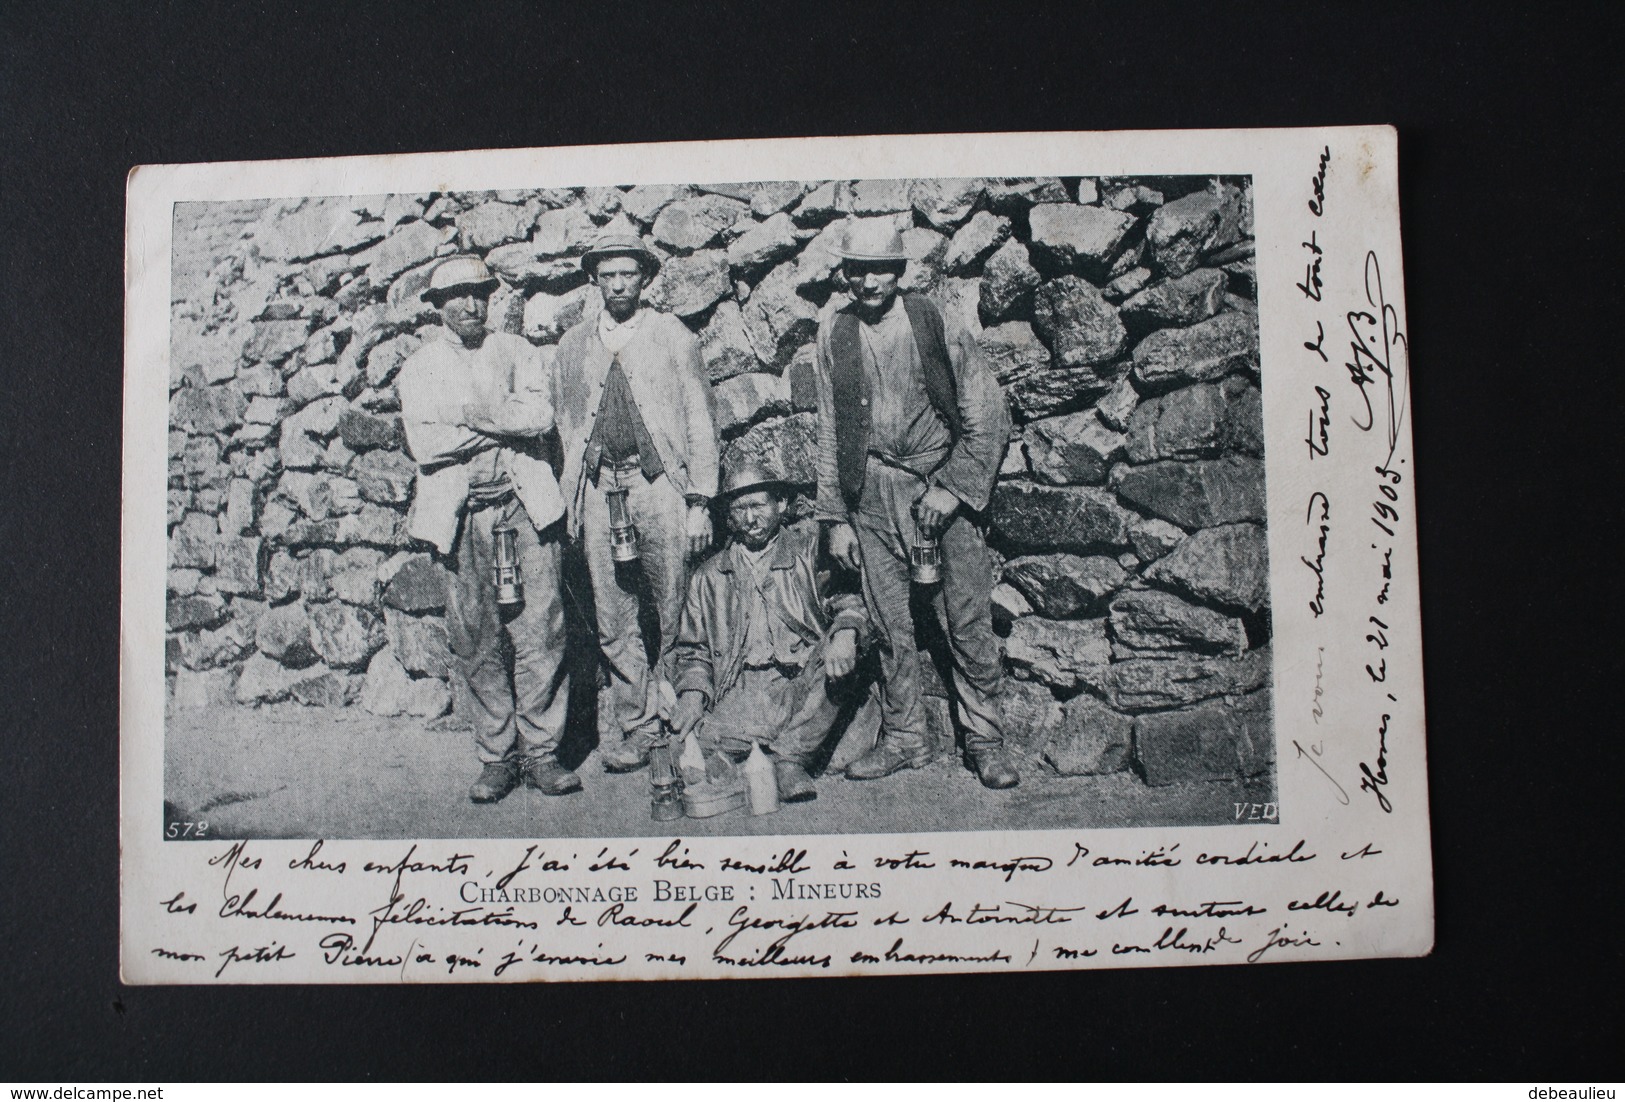 572
VED
Mes chers enfants, J'ai été bien sensible à votre marque d'amitié cordiale et
CHARBONNAGE BELGE : MINEURS
les Chaleureuses félicitations de Raoul, Georgette et Antoinette et surtout celles de
mon petit Pierre (à qui j'envoie mes meilleurs embrassements) me comblent de joie.
Je vous embrasse tous de tout cœur
A.P.B
Hornes, le 21 mai 1903.
delcampe.net
debeaulieu